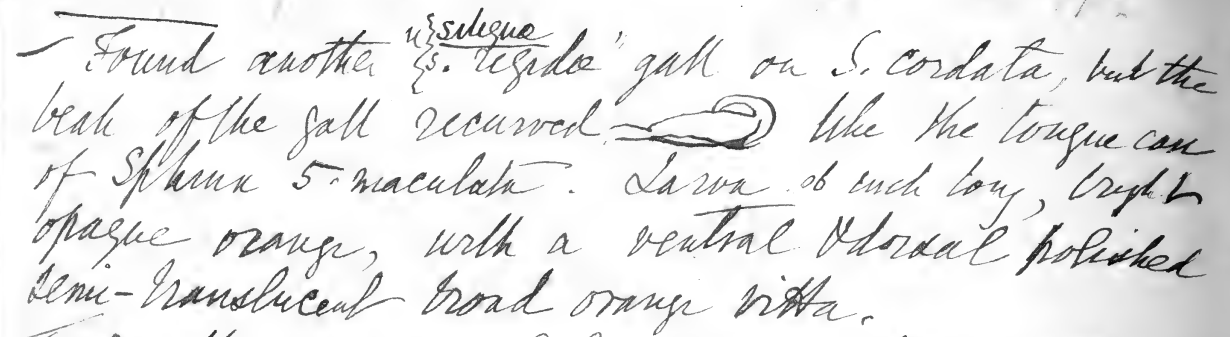 Found another "{siliqua {S. rigidae" gall on S. cordata, but the
beak of the gall recurved like the tongue case
of Sphinx 5-maculata. Larva .06 inch long, bright
opaque orange, with a ventral & dorsal polished
semi-translucent broad orange vitta.